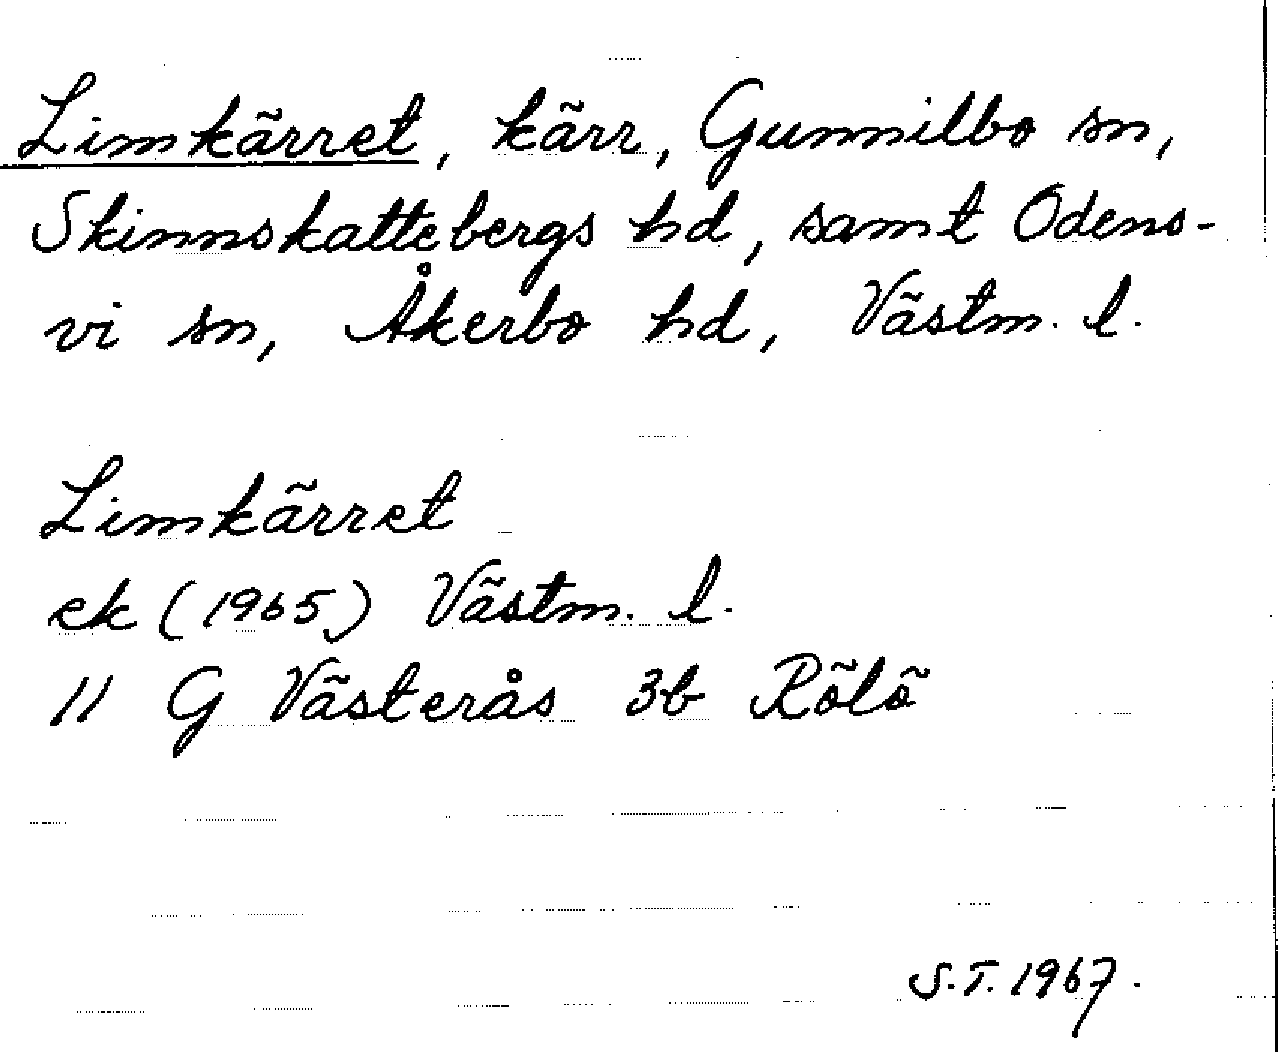 Limkärret, kärr, Gunnilbo sn,
Skinnskattebergs hd, samt Odens-
vi sn, Åkerbo hd, Västm. l.
Limkärret
ek (1965) Västm. l.
11 G Västerås 3b Rölö
S.T. 1967.